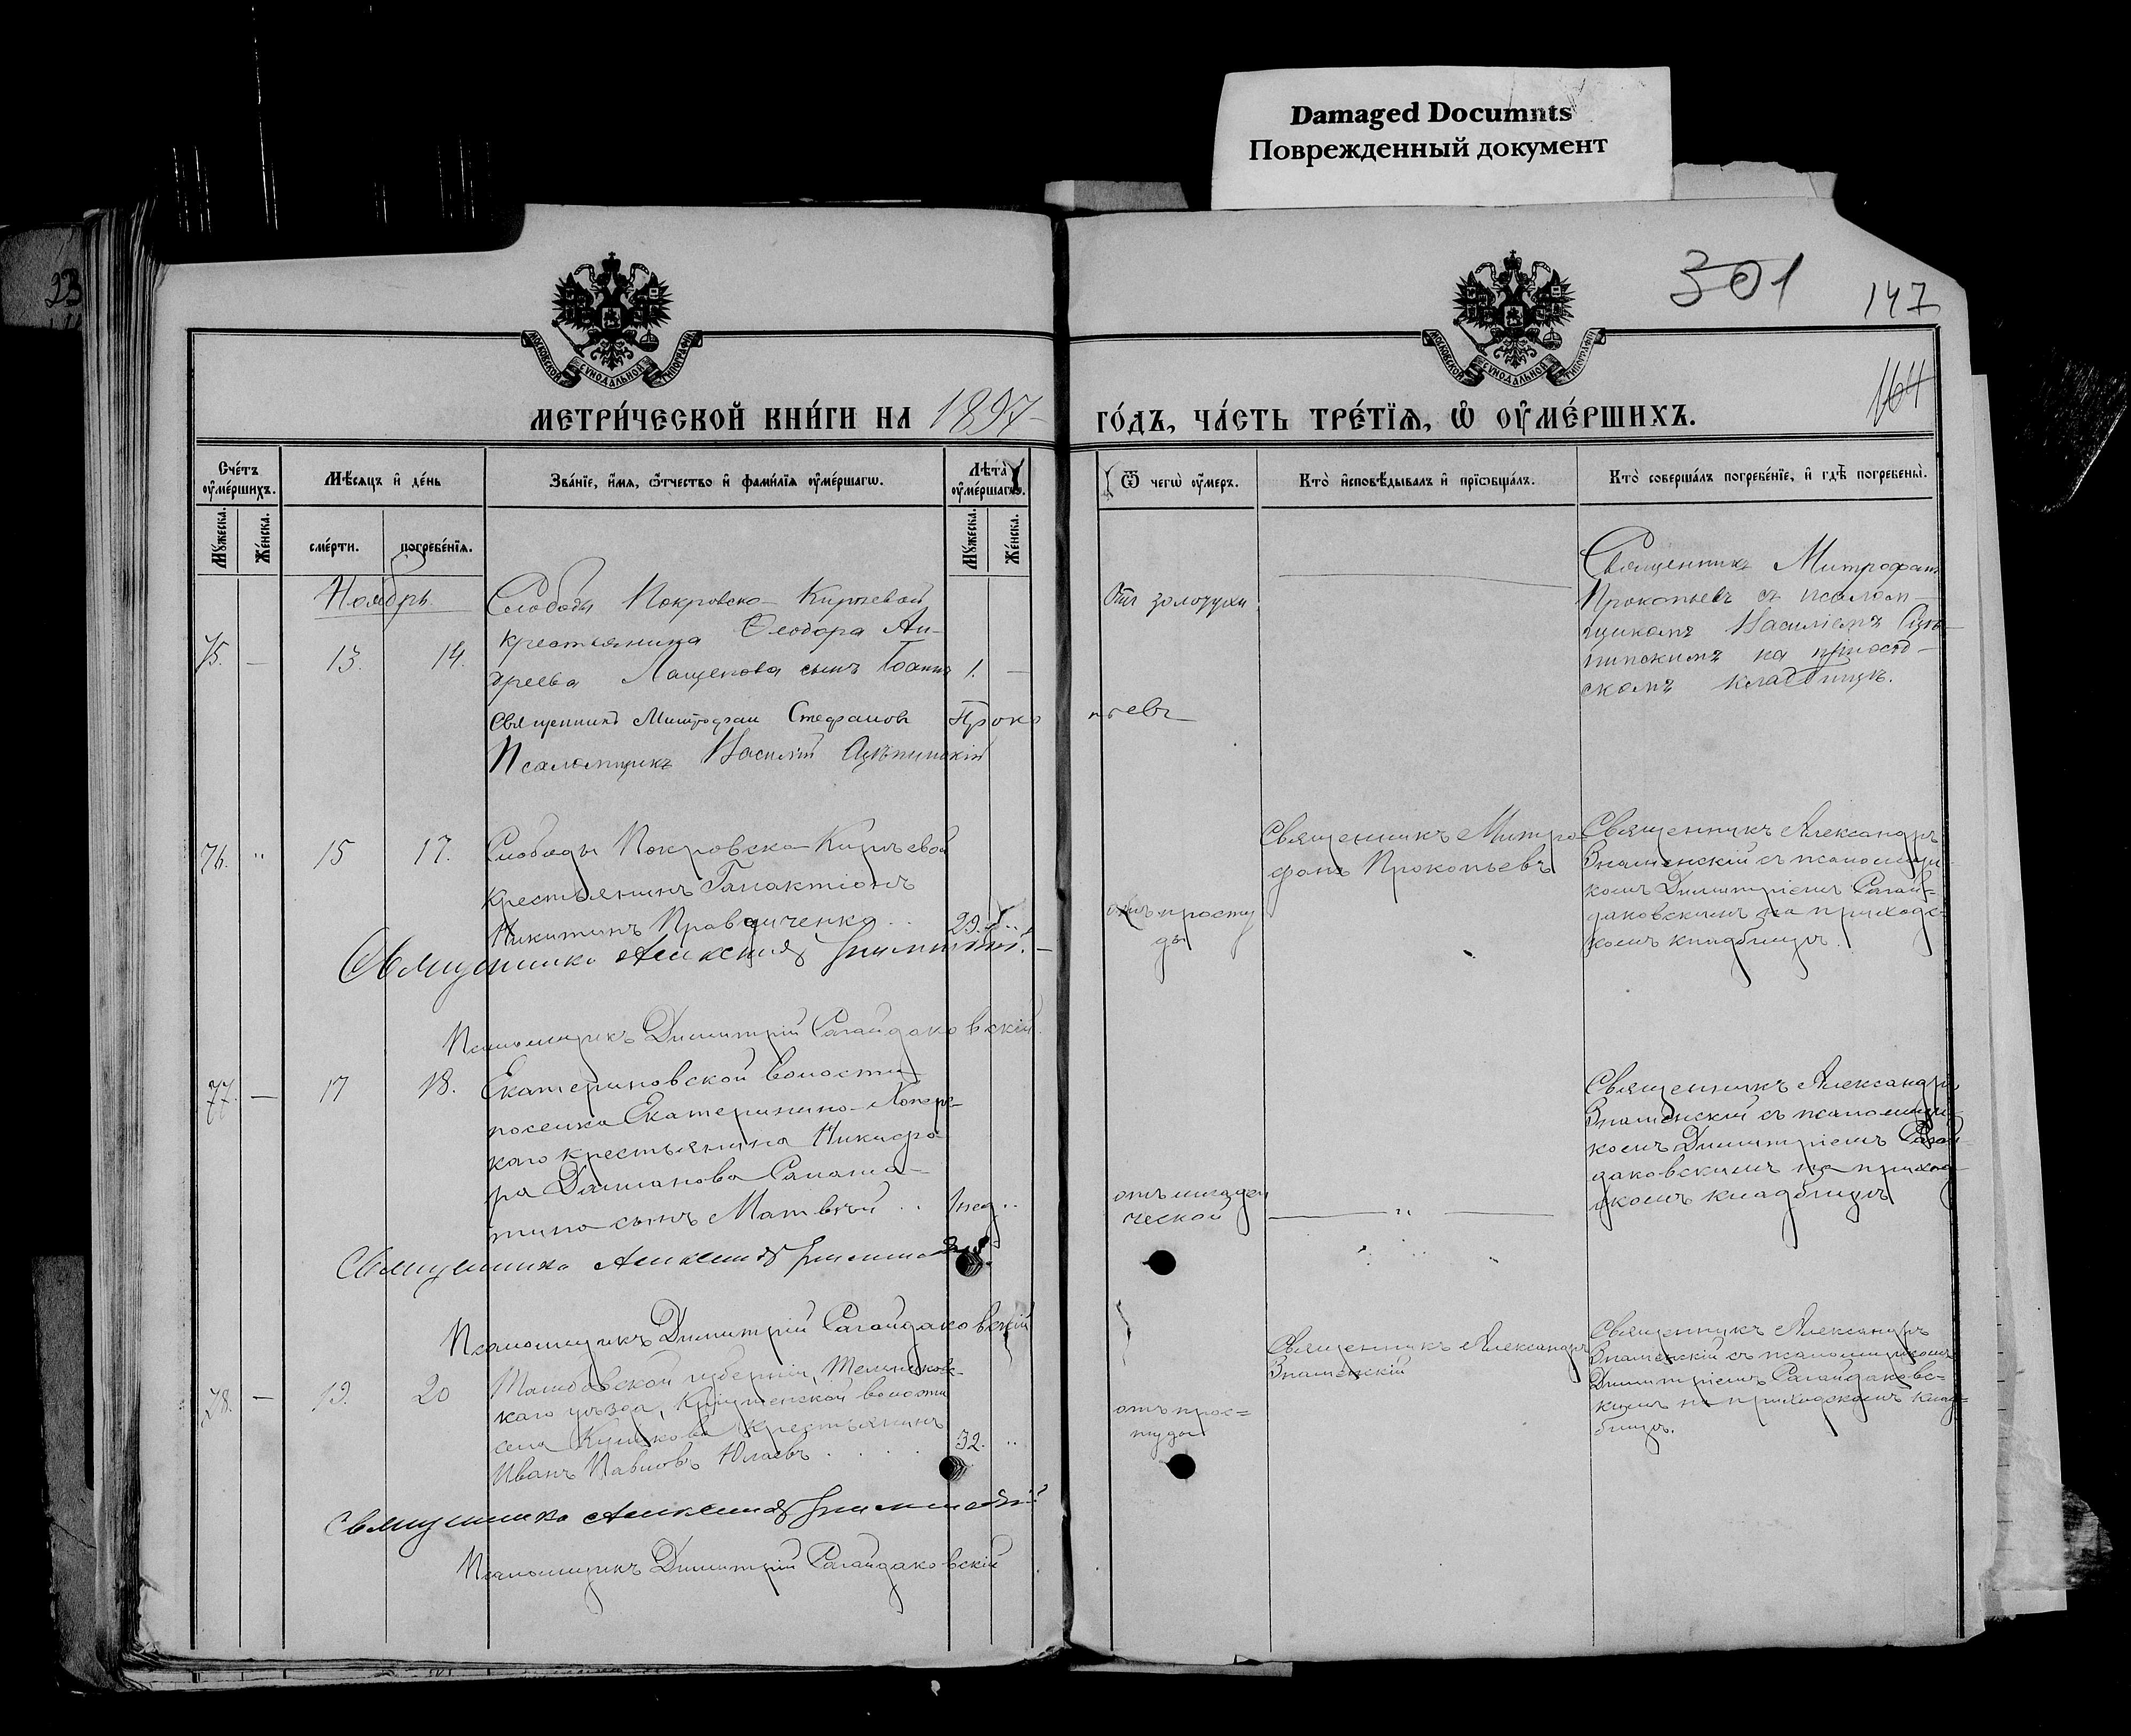 Damaged Documnts
Поврежденный документ
23
301
147
164
МОСКОВСКОЙ СѴНОДАЛЬНОЙ ТИПОГРАФІИ
МОСКОВСКОЙ СѴНОДАЛЬНОЙ ТИПОГРАФІИ
МЕТРИ́ЧЕСКОЙ КНИ́ГИ НА 1897
ГО́ДЪ, ЧА́СТЬ ТРЕ́ТЇѦ, Ѡ҆ ОУ҆МЕ́РШИХЪ.
Сче́тъ оу҆ме́ршихъ.
Мѣ́сѧцъ и҆ де́нь
Зва́нїе, и҆́мѧ, ѻ҆́тчество и҆ фами́лїѧ оу҆ме́ршагѡ.
Лѣ́та оу҆ме́ршагѡ.
Ѿ чегѡ̀ оу҆́меръ.
Кто̀ и҆сповѣ́дывалъ и҆ прїѡбща́лъ.
Кто̀ соверша́лъ погребе́нїе, и҆ гдѣ̀ погребены̀.
Мꙋ́жеска.
Же́нска.
сме́рти.
погребе́нїѧ.
Мꙋ́жеска.
Же́нска.
Ноябрь
Слободы Покровско-Киреевой
крестьянина Ѳеодора Ан-
75. — 13. 14.
дреева Лащенова сынъ Іоаннъ 1. —
Отъ золотухи
Священникъ Митрофанъ
Прокопьевъ съ псалом-
щикомъ Василіемъ
на приход-
скомъ кладбищѣ.
Священникъ Митрофан Стефановъ Прокопьевъ
Псаломщикъ Василій
76. " 15 17.
Слободы Покровско-Киреевой
крестьянинъ Галактіонъ
Никитинъ Правдиченко .. 29. ..
отъ просту
ды
Священникъ Митро-
фанъ Прокопьевъ
Священникъ Александръ
Знаменскій съ псаломщи-
комъ Димитріемъ Сагай-
даковскимъ на приходс-
комъ кладбищѣ.
Священникъ Александръ Знаменскій.
Псаломщикъ Димитрій Сагайдаковскій.
77. — 17 18.
Екатериновской волости
поселка Екатеринино-Хопер-
каго крестьянина Никифо-
ра Даттанова
сынъ Матвѣй .. 1 нед. ..
отъ младен
ческой
— " —
Священникъ Александръ
Знаменскій съ псаломщи-
комъ Димитріемъ Сагай-
даковскимъ на приход-
скомъ кладбищѣ
Священникъ Александръ Знаменскій.
Псаломщикъ Димитрій Сагайдаковскій
78. — 19. 20
Тамбовской губерніи,
каго уѣзда, волости
села крестьянинъ
Иванъ Павловъ Юлаевъ . . . . 32. ..
отъ прос=
туды
Священникъ Александръ
Знаменскій
Священникъ Александръ
Знаменскій съ псаломщикомъ
Димитріемъ Сагайдаковс-
кимъ на приходскомъ клад=
бищѣ.
Священникъ Александръ Знаменскій
Псаломщикъ Димитрій Сагайдаковскій